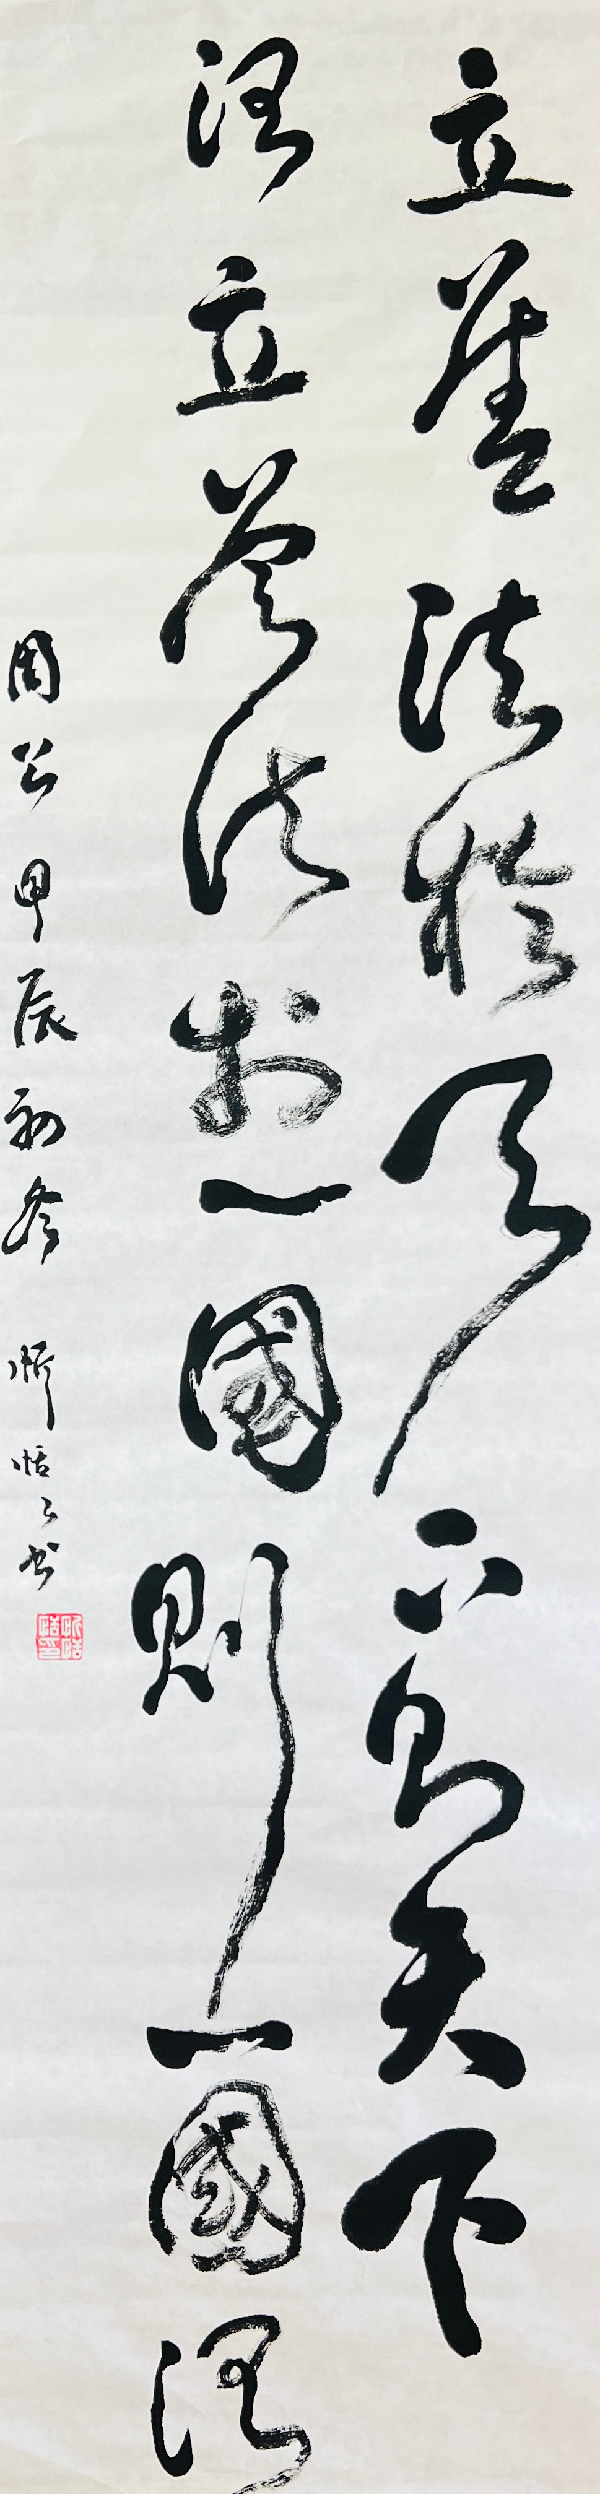 立善法於天下則天下
治立善法於一國則一國治
周公甲辰初冬 忻恬之书